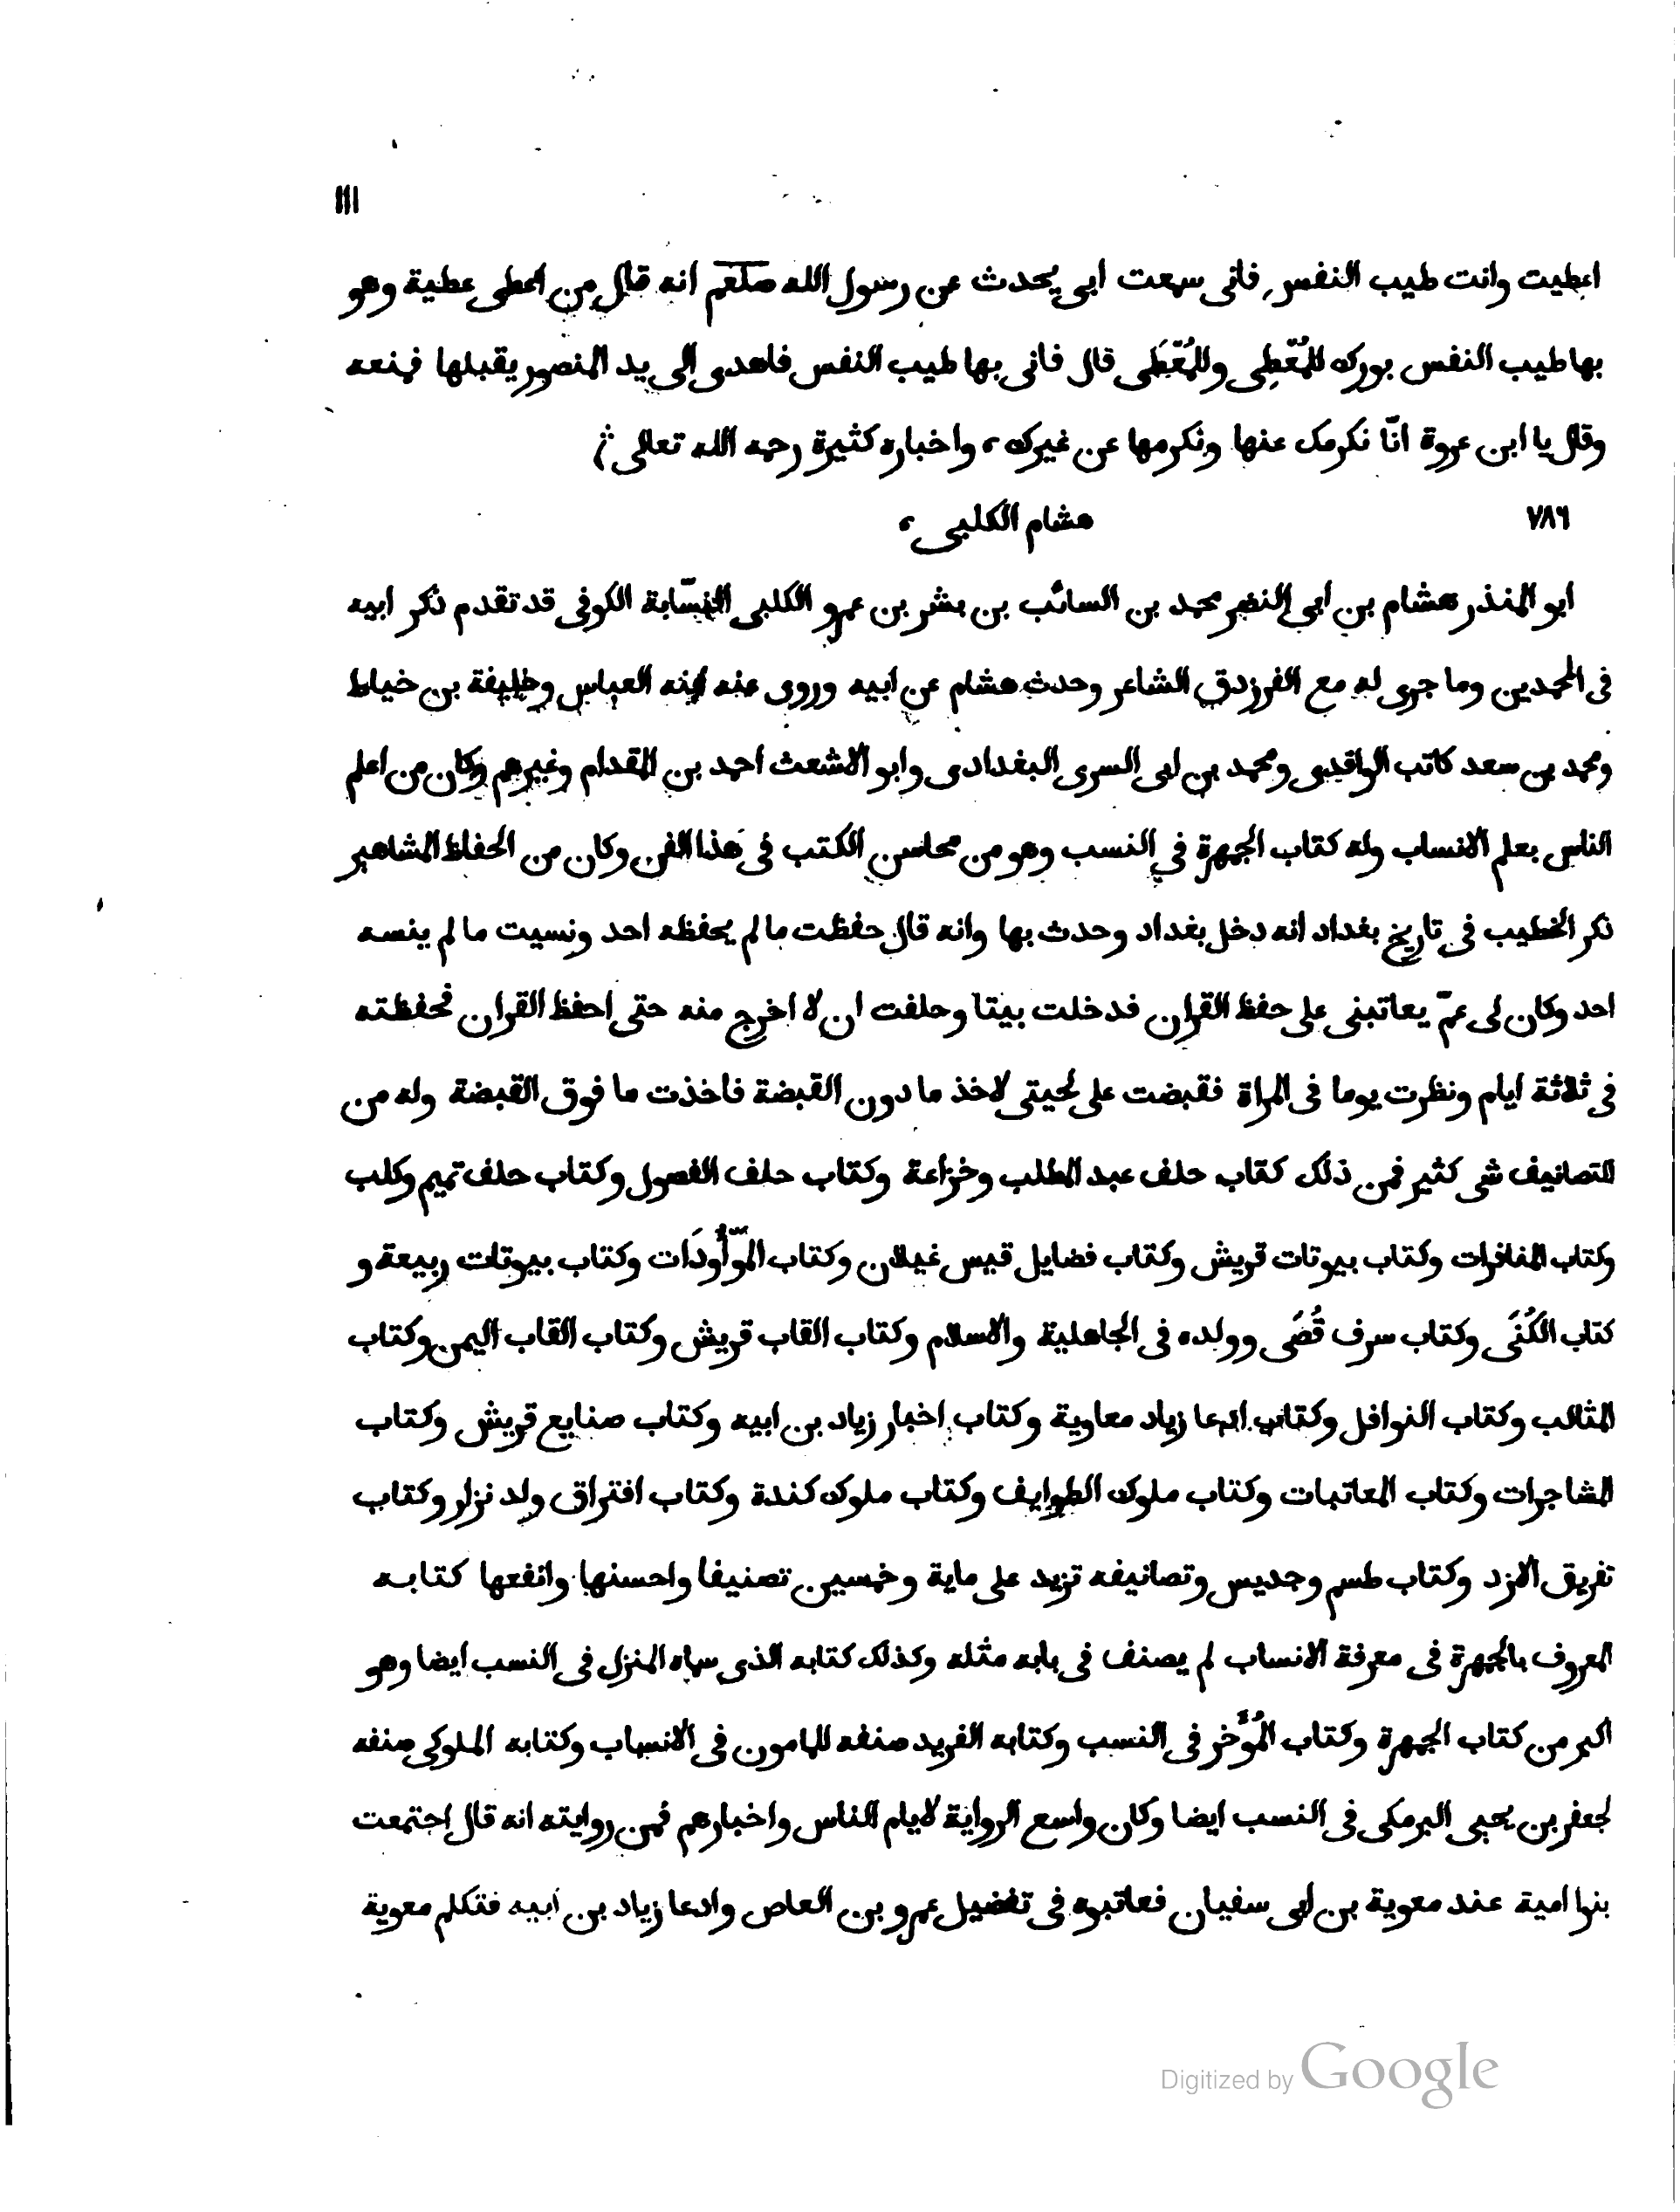 ١١١
اعطيت وانت طيب النفس فانى سمعت ابى يحدث عن رسول الله صلعم انه قال من اعطى عطية وهو
بها طيب النفس بورك للمُعْطِى وللمُعْطَى قال فانى بها طيب النفس فاهدى الى يد المنصور يقبلها فمنعه
وقال يا ابن عروة انّا نكرمك عنها ونكرمها عن غيرك، واخباره كثيرة رحمه الله تعالى
٧٨٦ هشام الكلبى،
ابو المنذر هشام بن ابى النضر محمد بن السائب بن بشر بن عمرو الكلبى النسّابة الكوفى قد تقدم ذكر ابيه
فى المحمدين وما جرى له مع الفرزدق الشاعر وحدث هشام عن ابيه وروى عنه ابنه العباس وخليفة بن خياط
ومحمد بن سعد كاتب الواقدى ومحمد بن ابى السرى البغدادى وابو الاشعث احمد بن المقدام وغيرهم وكان من اعلم
الناس بعلم الانساب وله كتاب الجمهرة فى النسب وهو من محاسن الكتب فى هذا الفن وكان من الحفاظ المشاهير
ذكر الخطيب فى تاريخ بغداد انه دخل بغداد وحدث بها وانه قال حفظت ما لم يحفظه احد ونسيت ما لم ينسه
احد وكان لى عمّ يعاتبنى على حفظ القران فدخلت بيتا وحلفت ان لا اخرج منه حتى احفظ القران فحفظته
فى ثلاثة ايام ونظرت يوما فى المراة فقبضت على لحيتى لاخذ ما دون القبضة فاخذت ما فوق القبضة وله من
التصانيف شى كثير فمن ذلك كتاب حلف عبد المطلب وخزاعة وكتاب حلف الفصول وكتاب حلف تميم وكلب
وكتاب المنافرات وكتاب بيوتات قريش وكتاب فضايل قيس غيلان وكتاب الموّأُودَات وكتاب بيوتات ربيعة و
كتاب الكُنَى وكتاب سرف قُصَى وولده فى الجاهلية والاسلام وكتاب القاب قريش وكتاب القاب اليمن وكتاب
المثالب وكتاب النوافل وكتاب ادعا زياد معاوية وكتاب اخبار زياد بن ابيه وكتاب صنايع قريش وكتاب
المشاجرات وكتاب المعاتبات وكتاب ملوك الطوايف وكتاب ملوك كندة وكتاب افتراق ولد نزار وكتاب
تفريق الازد وكتاب طسم وجديس وتصانيفه تزيد على ماية وخمسين تصنيفا واحسنها وانفعها كتابه
المعروف بالجمهرة فى معرفة الانساب لم يصنف فى بابه مثله وكذلك كتابه الذى سماه المنزل فى النسب ايضا وهو
اكبر من كتاب الجمهرة وكتاب المُؤَخر فى النسب وكتابه الفريد صنفه للمامون فى الانساب وكتابه الملوكى صنفه
لجعفر بن يحيى البرمكى فى النسب ايضا وكان واسع الرواية لايام الناس واخبارهم فمن روايته انه قال اجتمعت
بنوا امية عند معوية بن ابى سفيان فعاتبوه فى تفضيل عمرو بن العاص وادعا زياد بن ابيه فتكلم معوية
Digitized by Google